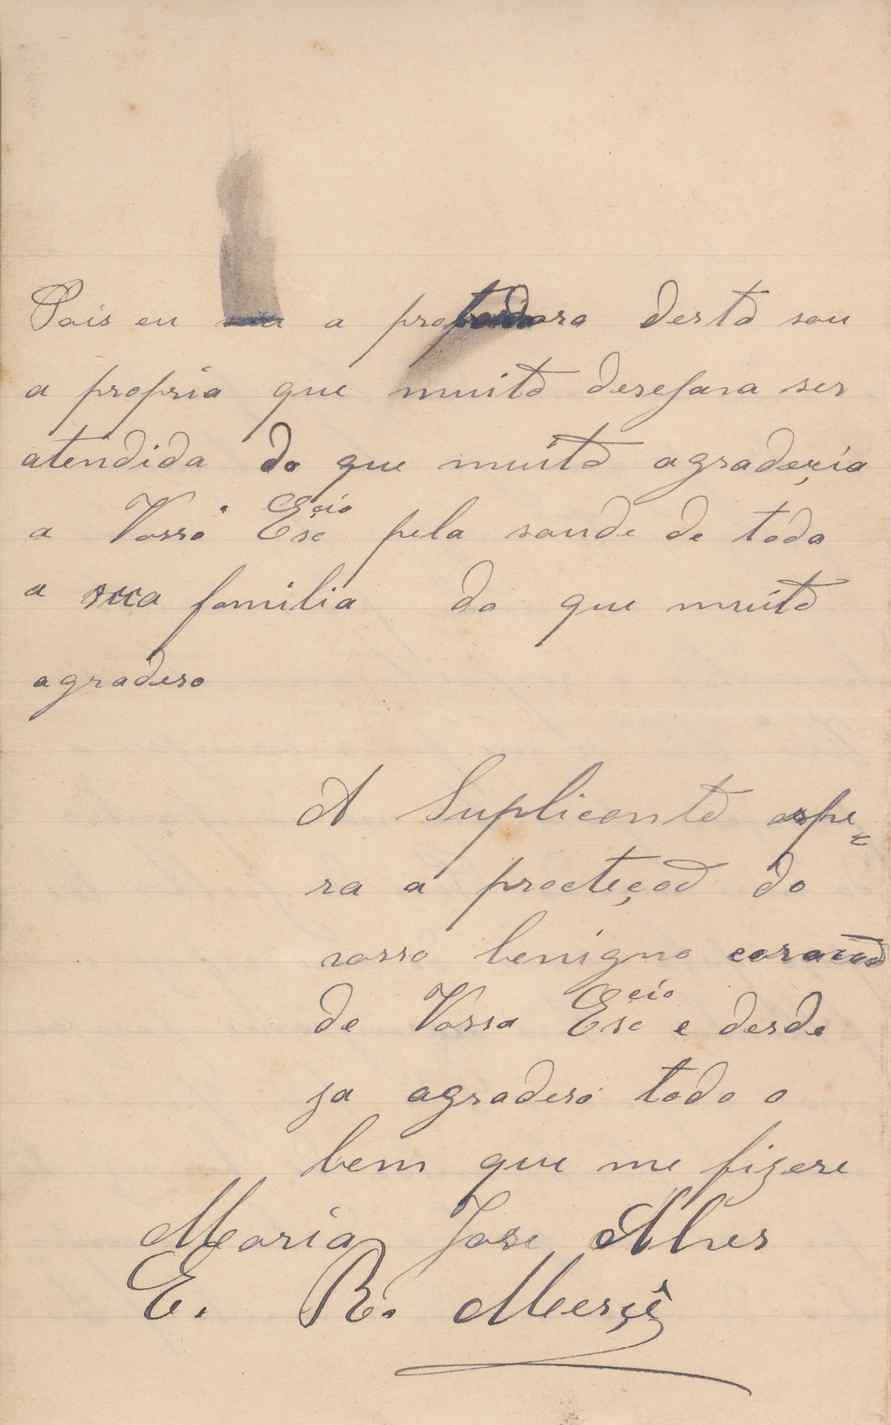 Pois eu a portadora desta sou
a propria que muito desejara ser
atendida do que muito agradeçia
a Vossa Esc.cia pela saude de toda
a sua familia do que muito
agradeso
A Suplicente espe
ra a procteçaõ do
vosso benigno coraçaõ
de Vossa Esccia e desde
ja agradeso todo o
bem que me fizere
Maria Jose Alves
E. R. Merçê